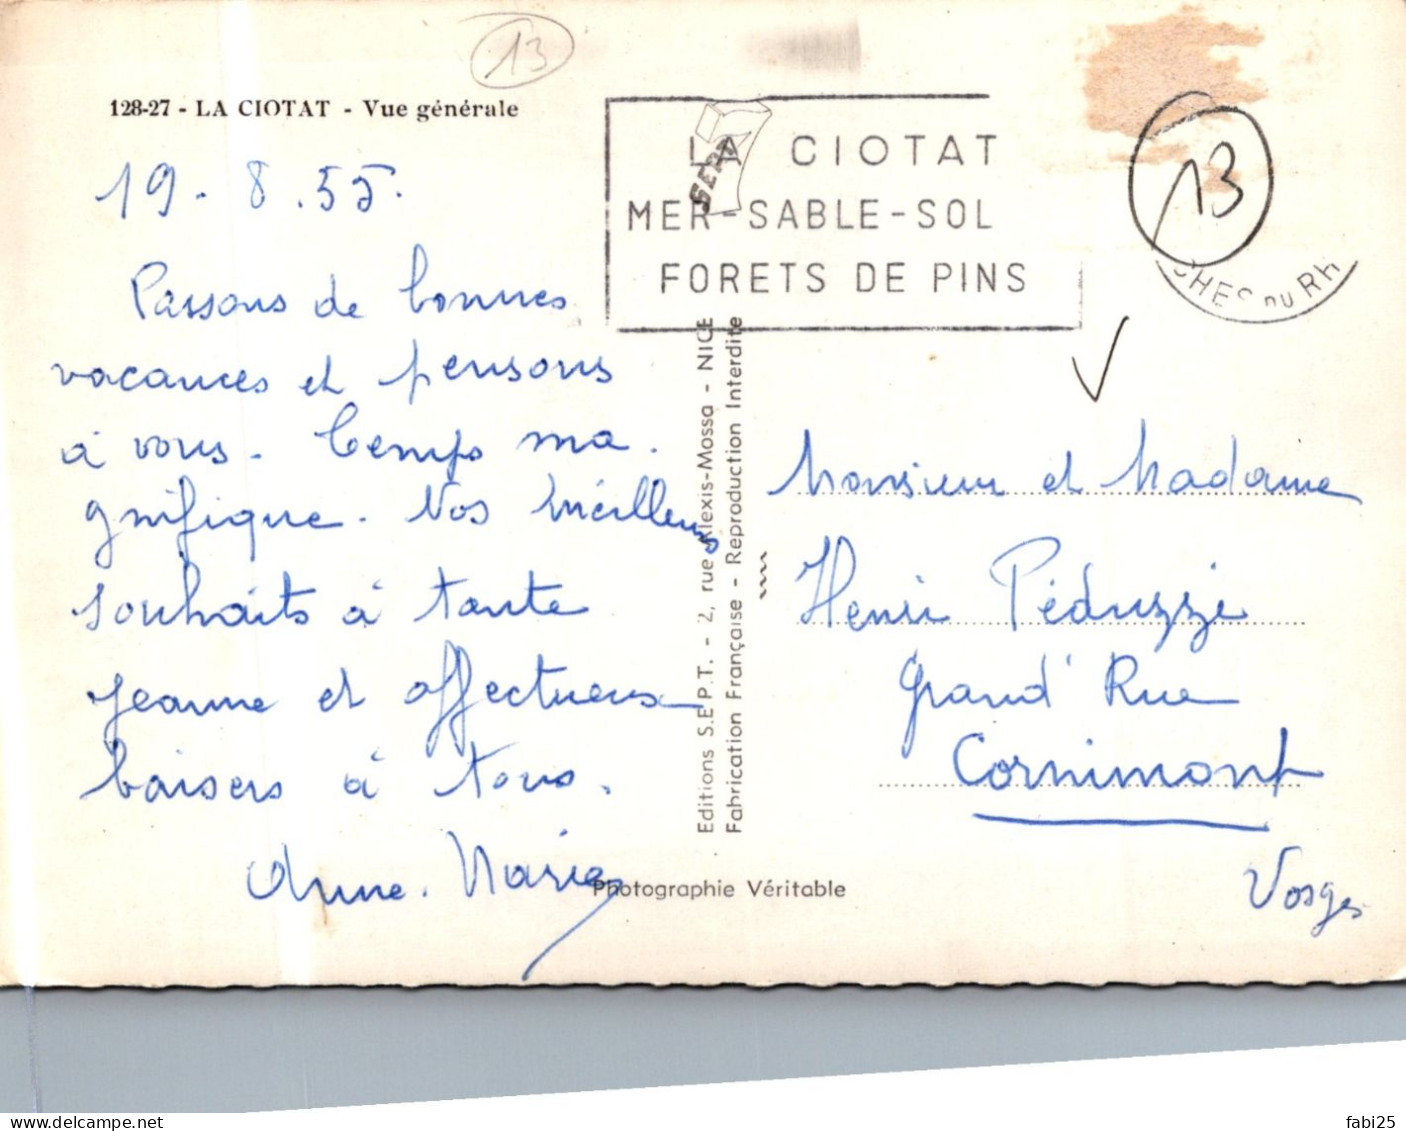 13
128-27 - LA CIOTAT - Vue générale
19. 8. 55.
Passons de bonnes
vacances et pensons
à vous. Temps ma.
gnifique. Nos meilleurs
souhaits à tante
Jeanne et affectueux
baisers à tous.
Anne. Marie
LA CIOTAT
MER-SABLE-SOL
FORETS DE PINS
SEPT
13
CHES DU RH
Editions S.E.P.T. - 2, rue Alexis-Mossa - NICE
Fabrication Française - Reproduction Interdite
Photographie Véritable
Monsieur et Madame
Henri Péduzzi
Grand' Rue
Cornimont
Vosges
www.delcampe.net
fabi25